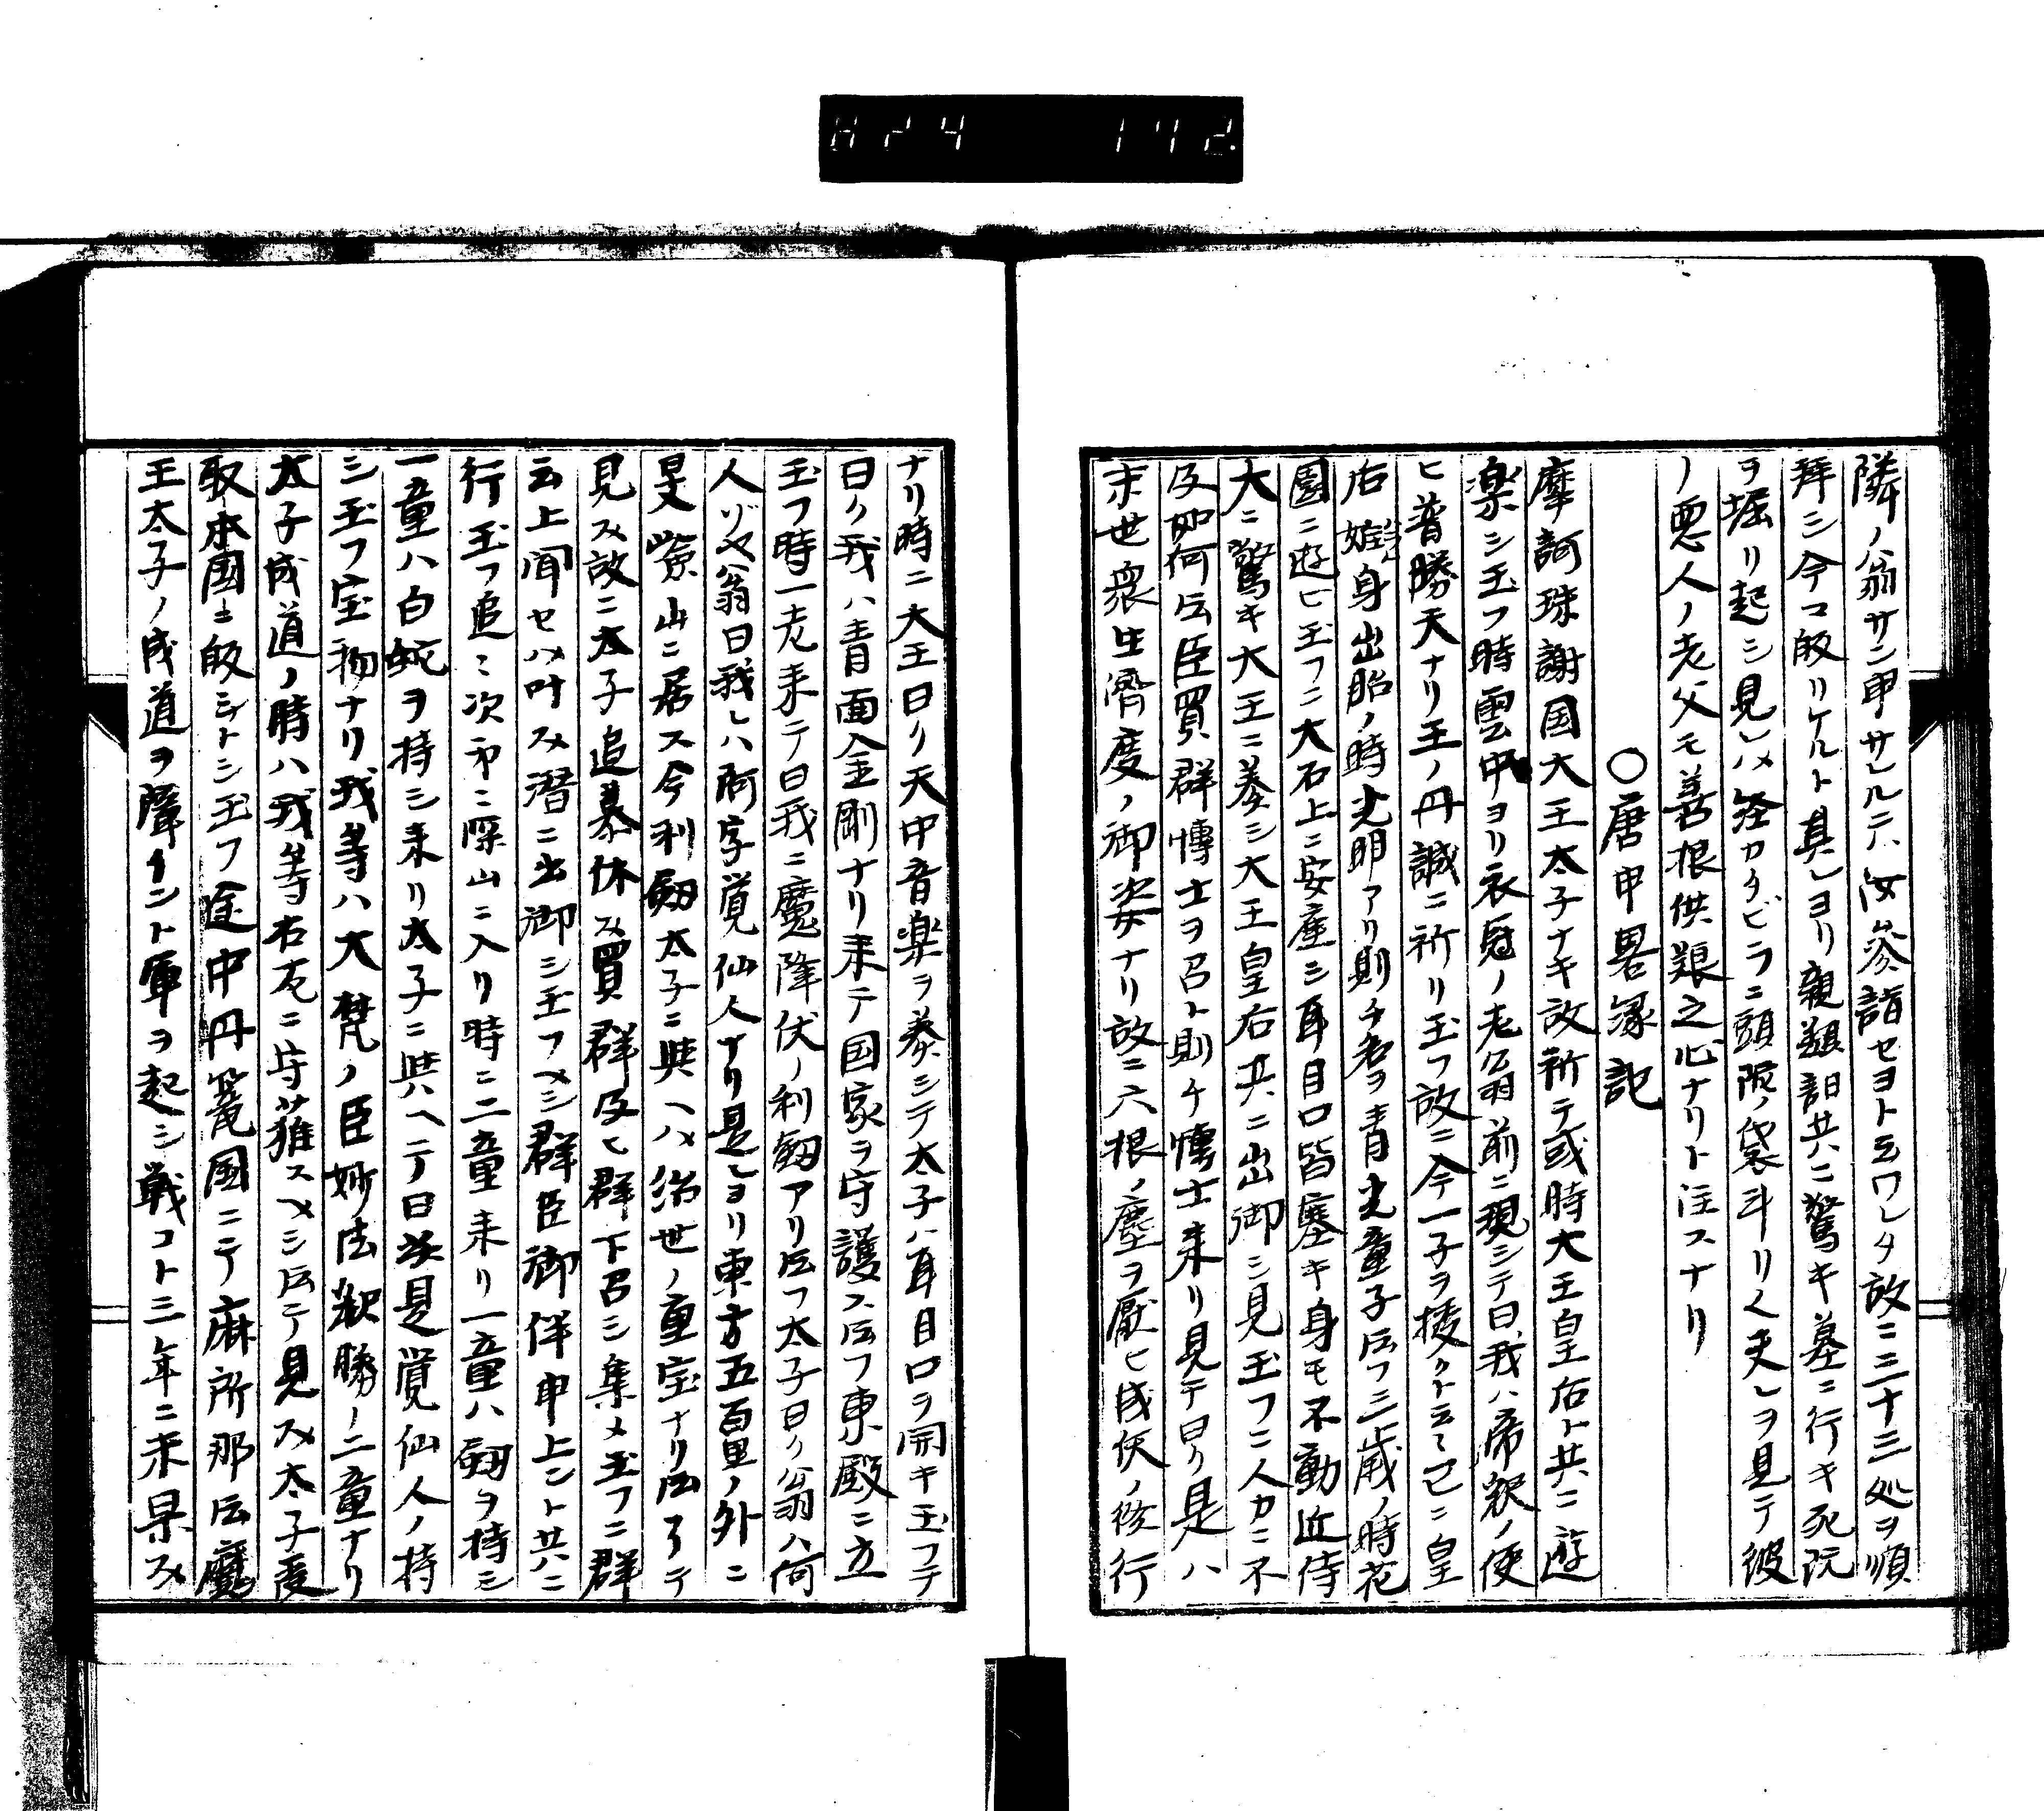 824 142
隣ノ翁サン申サルニハ汝參詣セヨト云ワレタ故ニ三十三処ヲ順
拜シ今コ皈リケルト其レヨリ親類詣共ニ驚キ墓ニ行キ死玩
ヲ堀リ起シ見レハ経カタビラニ頭陀ノ袋斗リ人夫レヲ見テ彼
ノ悪人ノ老父モ善根供養之心ナリト注スナリ
○唐申畧縁記
摩訶珠謝国大王太子ナキ故祈テ或時大王皇后ト共ニ遊
楽シ玉フ時雲中ヨリ衣冠ノ老翁前ニ現シテ曰我ハ帝釈ノ使
ヒ普勝天ナリ王ノ丹誠ニ祈リ玉フ故ニ今一子ヲ授クト云々已ニ皇
后姙身出胎ノ時光明アリ則チ名ヲ青光童子伝フ三歳ノ時花
園ニ遊ヒ玉フニ大石上ニ安座シ耳目口皆塞キ身モ不動近侍
大ニ驚キ大王ニ奏シ大王皇后共ニ出御シ見玉フニ人力ニ不
及如何伝臣買群博士ヲ召ト則チ博士来リ見テ曰ク是ハ
末世衆生濟度ノ御姿ナリ故ニ六根ノ塵ヲ厭ヒ成仏ノ修行
ナリ時ニ大王曰ク天中音楽ヲ奏シテ太子ハ耳目口ヲ開キ玉フテ
曰ク我ハ青面金剛ナリ来テ国家ヲ守護ス伝フ東殿ニ立
玉フ時一老来テ曰我ニ魔降伏ノ利劔アリ伝フ太子曰ク翁ハ何
人ゾヤ翁曰我レハ阿字覚仙人ナリ是レヨリ東方五百里ノ外ニ
旻紫山ニ居ス今利劔太子ニ與ヘハ治世ノ重宝ナリ伝了テ
見ヌ故ニ太子追慕休ス買群及ヒ群下召シ集メ玉フニ群
云上聞セハ叶ヌ潜ニ出御シ玉フヘシ群臣御伴申上ント共ニ
行玉フ追々次第ニ深山ニ入リ時ニ二童来リ一童ハ劔ヲ持シ
一童ハ白蛇ヲ持シ来リ太子ニ與ヘテ曰汝是覚仙人ノ持
シ玉フ宝物ナリ我等ハ大梵ノ臣妙法釈勝ノ二童ナリ
太子成道ノ時ハ我等右左ニ守護スヘシ伝テ見ヌ太子受
取本国ニ皈ントシ玉フ途中丹篭国ニテ麻所那伝魔
王太子ノ成道ヲ障ケント軍ヲ起シ戦コト三年ニ未果ス